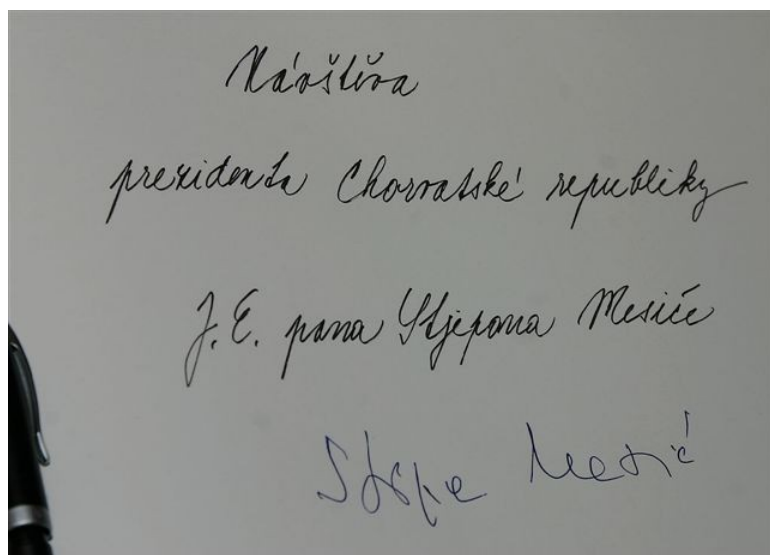 Návštěva
prezidenta Chorvatské republiky
J. E. pana Stjepana Mesiće
Stipe Mesić